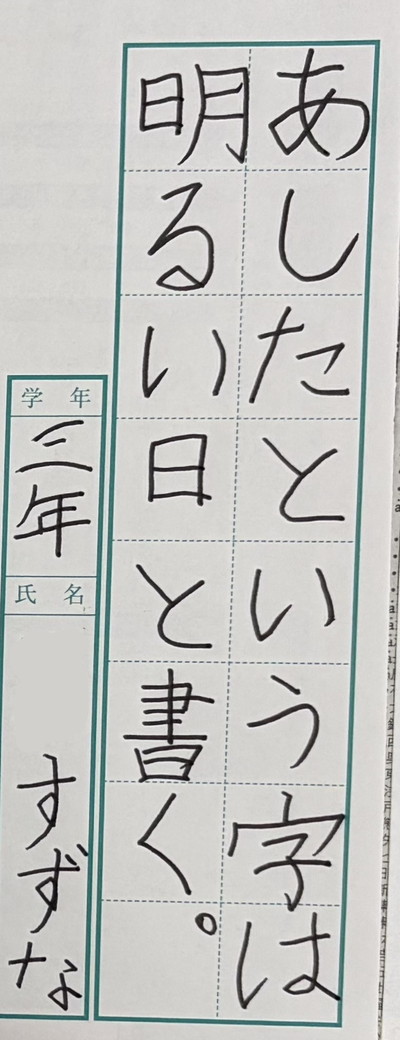 あしたという字は
明るい日と書く。
学年
三年
氏名
すずな